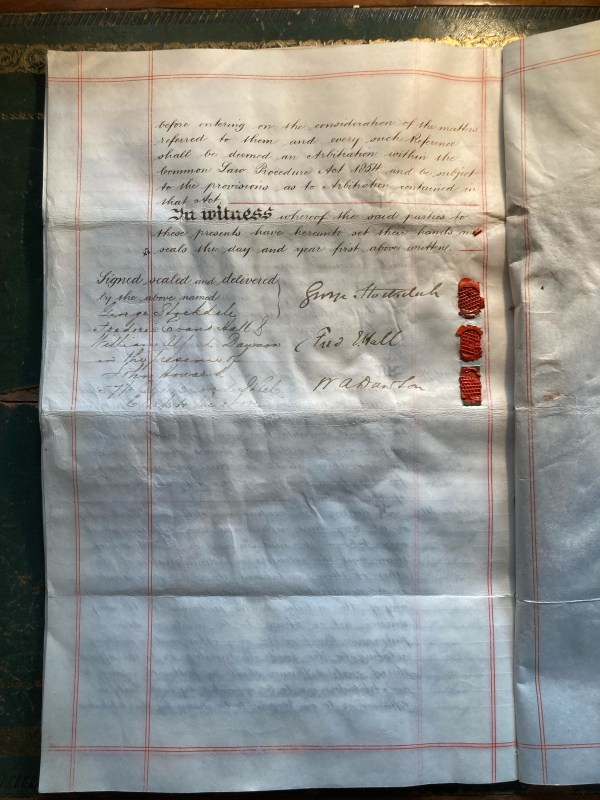 before entering on the consideration of the matters
referred to them and every such Reference
shall be deemed an Arbitration within the
Common Law Procedure Act 1854 and be subject
to the provisions as to Arbitration contained in
that Act
In witness whereof the said parties to
these presents have hereunto set their hands and
seals the day and year first above written
Signed sealed and delivered
by the above named
George Stockdale
Frederic Evans Hall &
William Dawson
in the presence of
George Stockdale
Fred E. Hall
W A Dawson